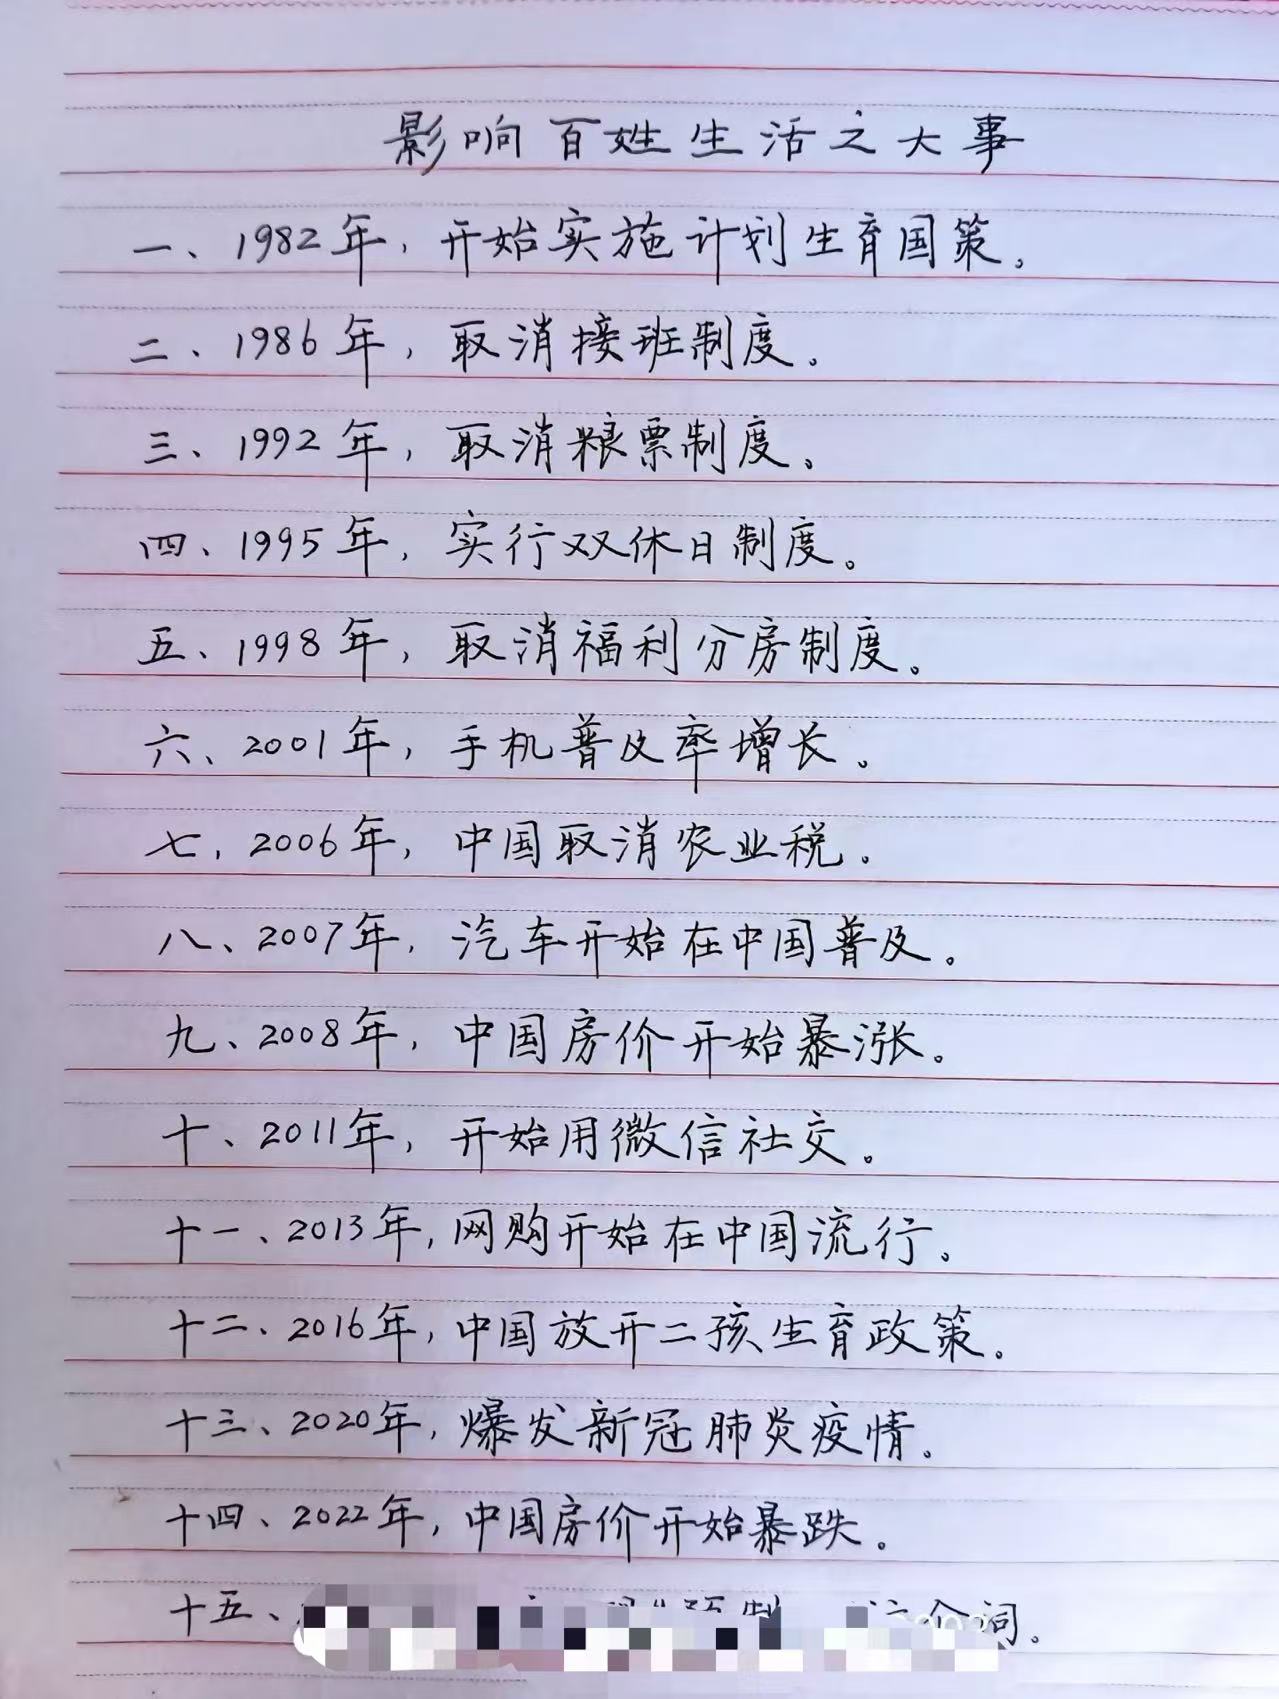 影响百姓生活之大事
一、1982年，开始实施计划生育国策。
二、1986年，取消接班制度。
三、1992年，取消粮票制度。
四、1995年，实行双休日制度。
五、1998年，取消福利分房制度。
六、2001年，手机普及率增长。
七，2006年，中国取消农业税.
八、2007年，汽车开始在中国普及。
九、2008年，中国房价开始暴涨。
十、2011年，开始用微信社交。
十一、2013年，网购开始在中国流行。
十二、2016年，中国放开二孩生育政策。
十三、2020年，爆发新冠肺炎疫情。
十四、2022年，中国房价开始暴跌。
十五、个词。